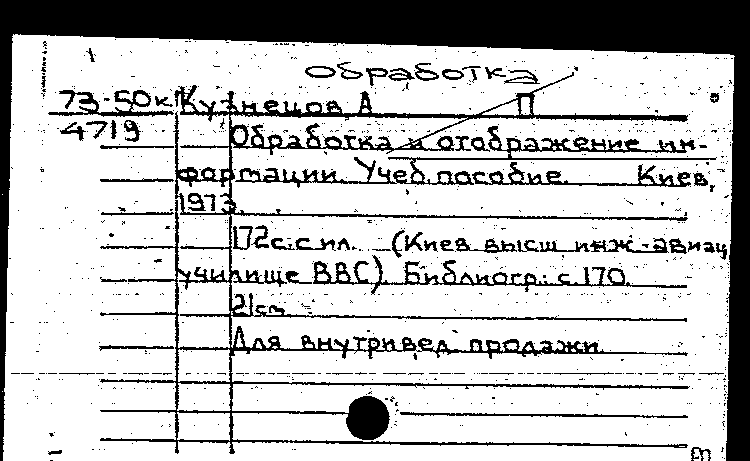 обработка
73-50к Кузнецов А П
4719 Обработка и отображение ин-
формации. Учеб. пособие. Киев,
1973.
172с. с ил. (Киев высш инж.-авиац
училище ВВС). Библиогр.: с. 170.
21см
Для внутривед. продажи